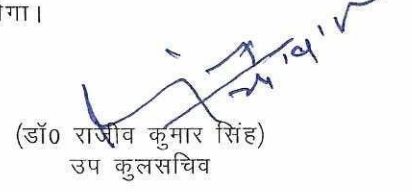 (डॉ0 राजीव कुमार सिंह)
उप कुलसचिव